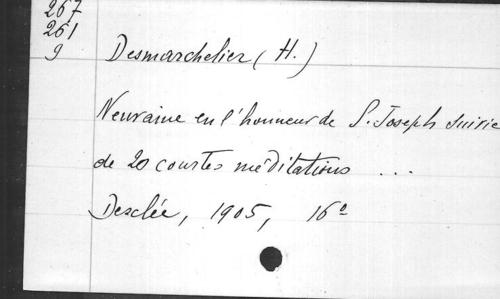 267
261
9
Desmarchelier (H.)
Neuvaine en l'honneur de S. Joseph suivie
de 20 courtes méditations ...
Desclée, 1905, 16°